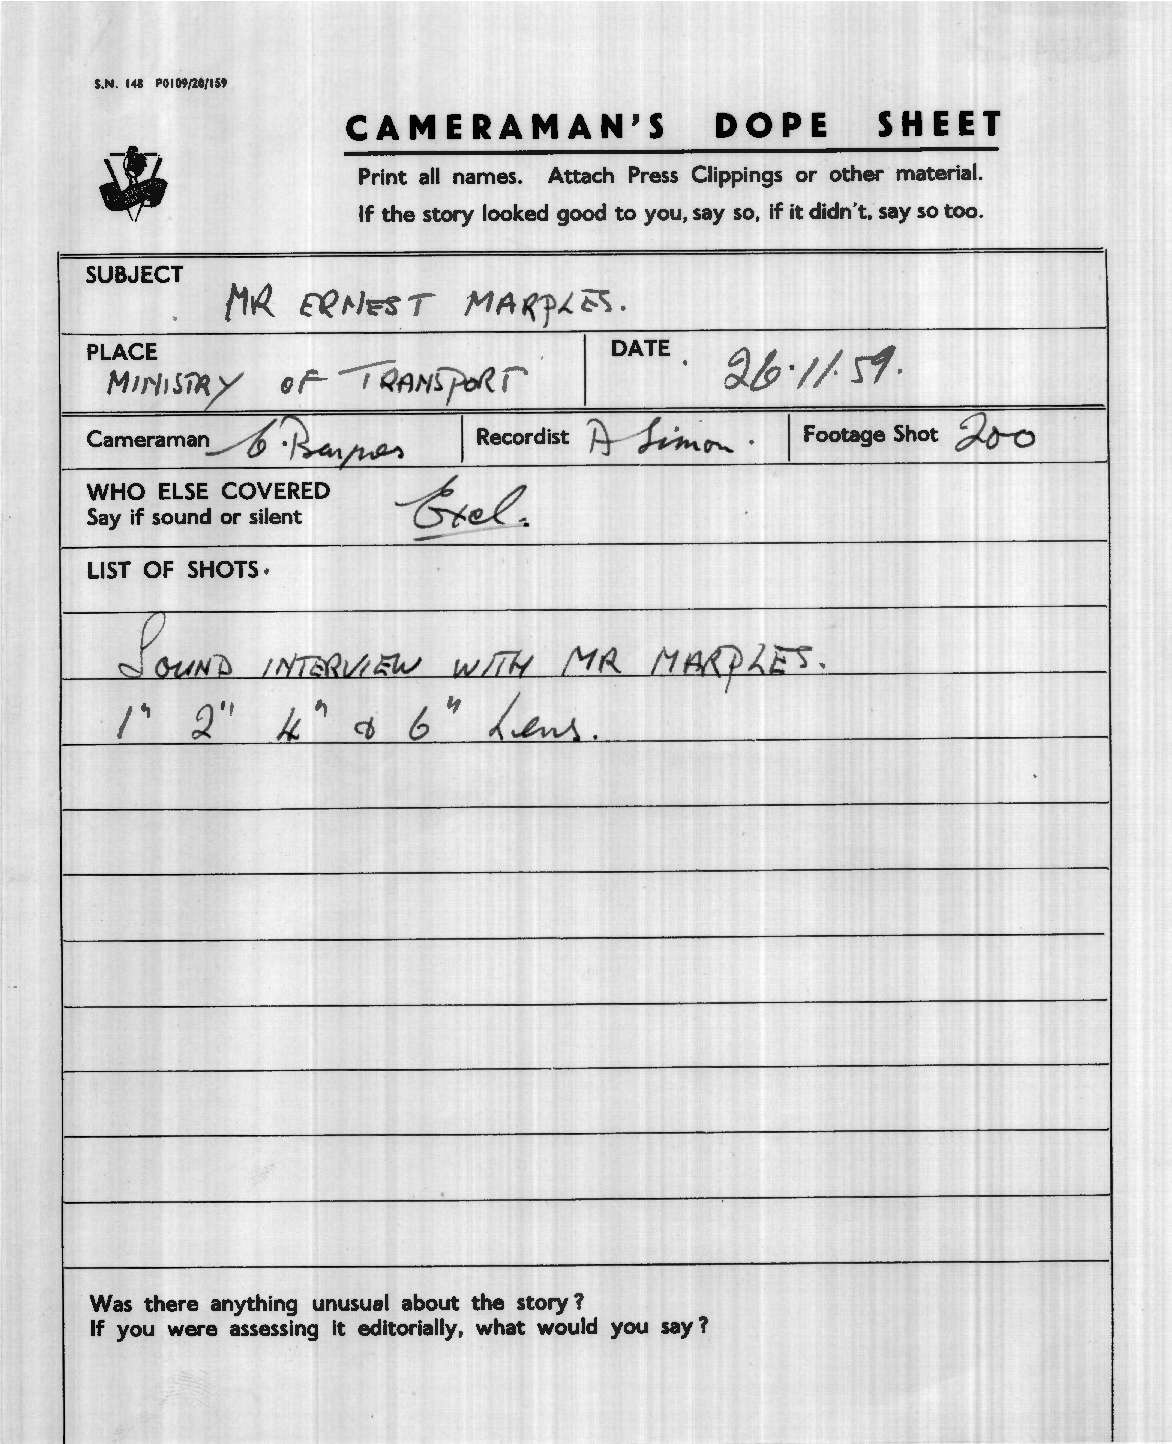 S.N. 148 P0109/20/159
CAMERAMAN'S DOPE SHEET
Print all names. Attach Press Clippings or other material.
If the story looked good to you, say so, if it didn't, say so too.
SUBJECT
MR ERNEST MARPLES.
PLACE
MINISTRY OF TRANSPORT
DATE 26.11.59.
Cameraman Barnes Recordist A Simon. Footage Shot 200
WHO ELSE COVERED
Say if sound or silent
Excl.
LIST OF SHOTS.
SOUND INTERVIEW WITH MR MARPLES.
1" 2" 4" & 6" Lens.
Was there anything unusual about the story?
If you were assessing it editorially, what would you say?